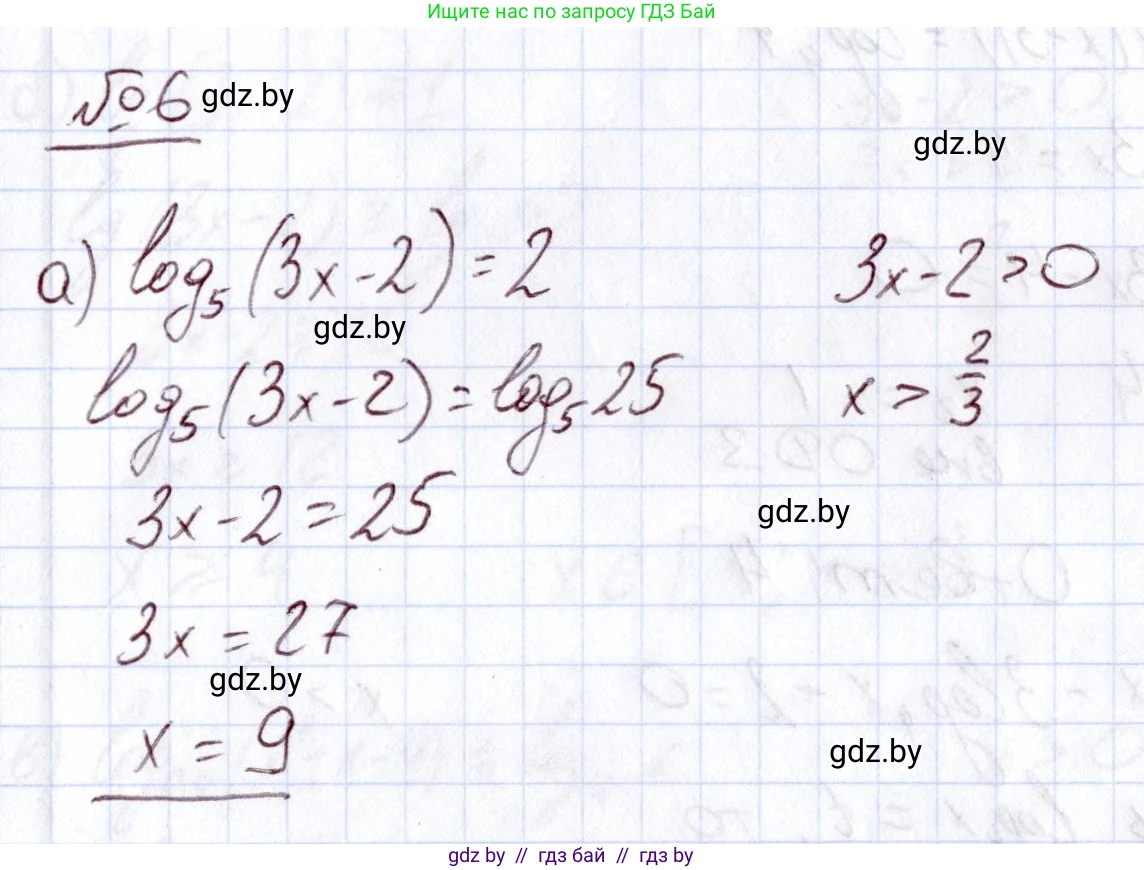 Ищите нас по запросу ГДЗ Бай
№6 gdz.by
gdz.by
а) log₅(3x-2)=2 3x-2>0
gdz.by
log₅(3x-2)=log₅25 x > 2/3
3x-2=25
gdz.by
3x=27
gdz.by
x=9
gdz.by
gdz by // гдз бай // гдз by